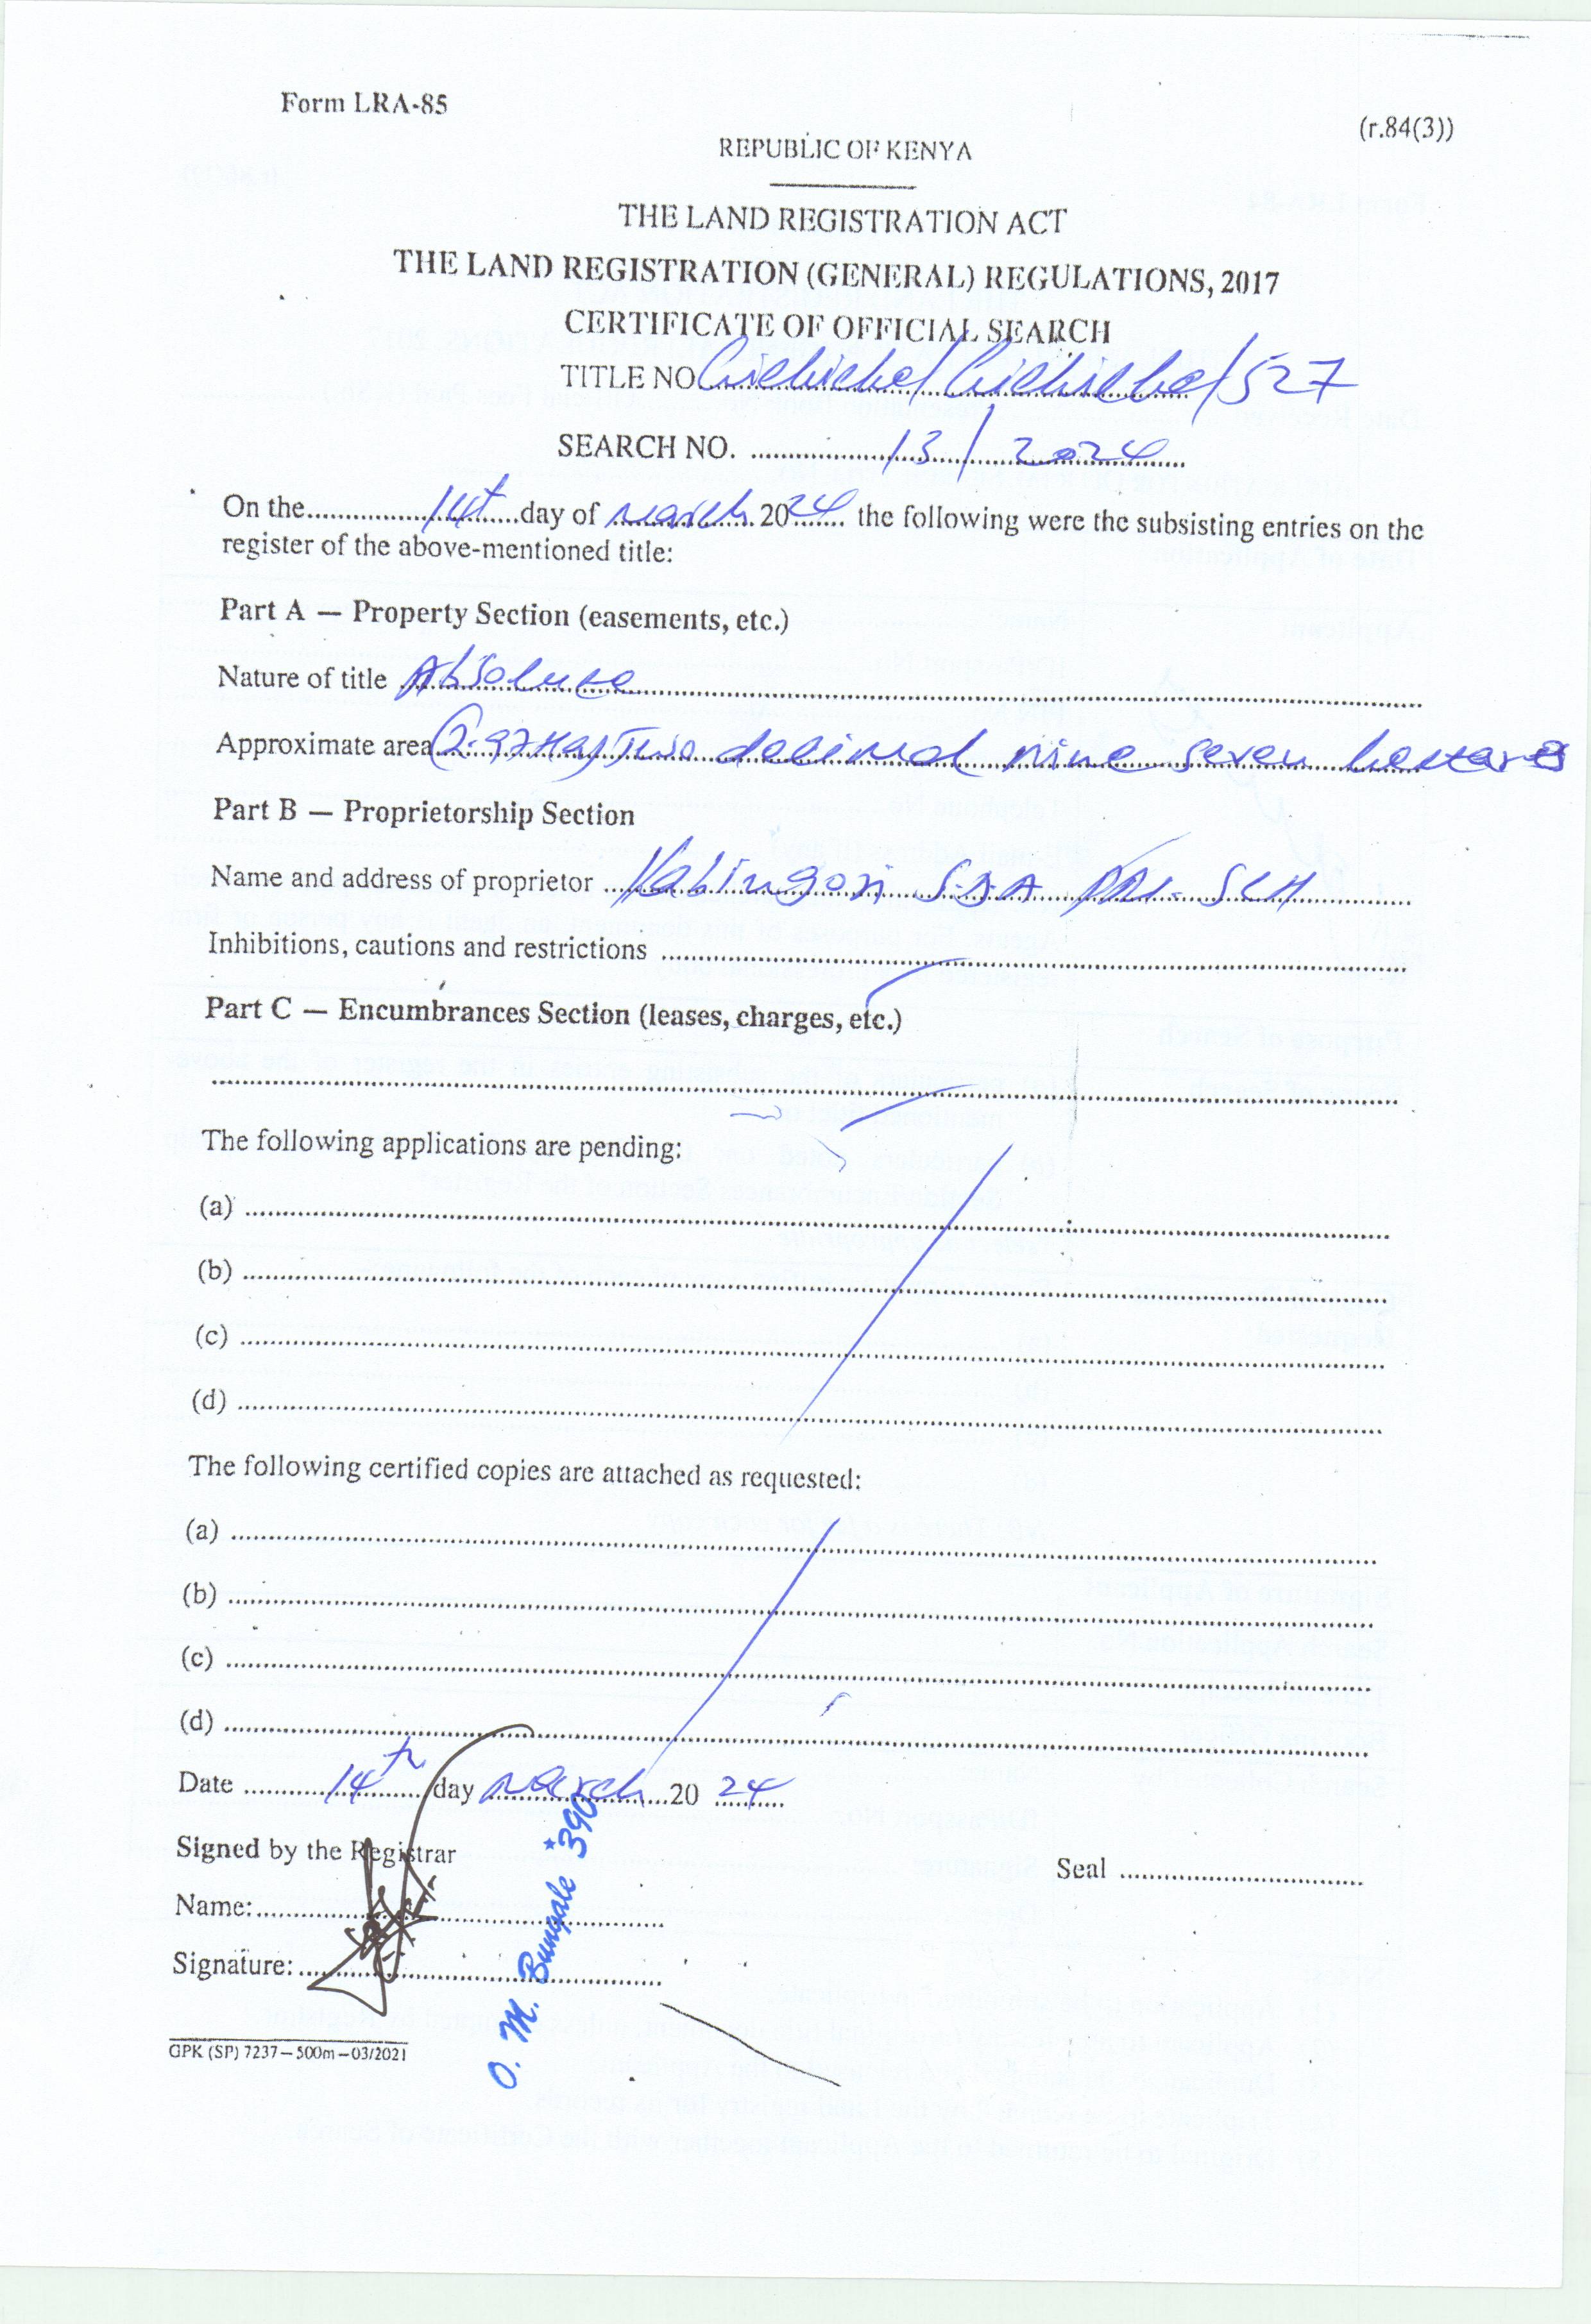 Form LRA-85
(r.84(3))
REPUBLIC OF KENYA
THE LAND REGISTRATION ACT
THE LAND REGISTRATION (GENERAL) REGULATIONS, 2017
CERTIFICATE OF OFFICIAL SEARCH
TITLE NO. /527
SEARCH NO. 13/2024
On the 14th day of March 2024 the following were the subsisting entries on the
register of the above-mentioned title:
Part A — Property Section (easements, etc.)
Nature of title Absolute
Approximate area (2.97Ha) Two decimal nine seven hectares
Part B — Proprietorship Section
Name and address of proprietor S.D.A PRI- SCH
Inhibitions, cautions and restrictions
Part C — Encumbrances Section (leases, charges, etc.)
The following applications are pending:
(a)
(b)
(c)
(d)
The following certified copies are attached as requested:
(a)
(b)
(c)
(d)
Date 14th day March 20 24
Signed by the Registrar
Seal
Name:
Signature:
O. M. Bungale *390
GPK (SP) 7237—500m—03/2021